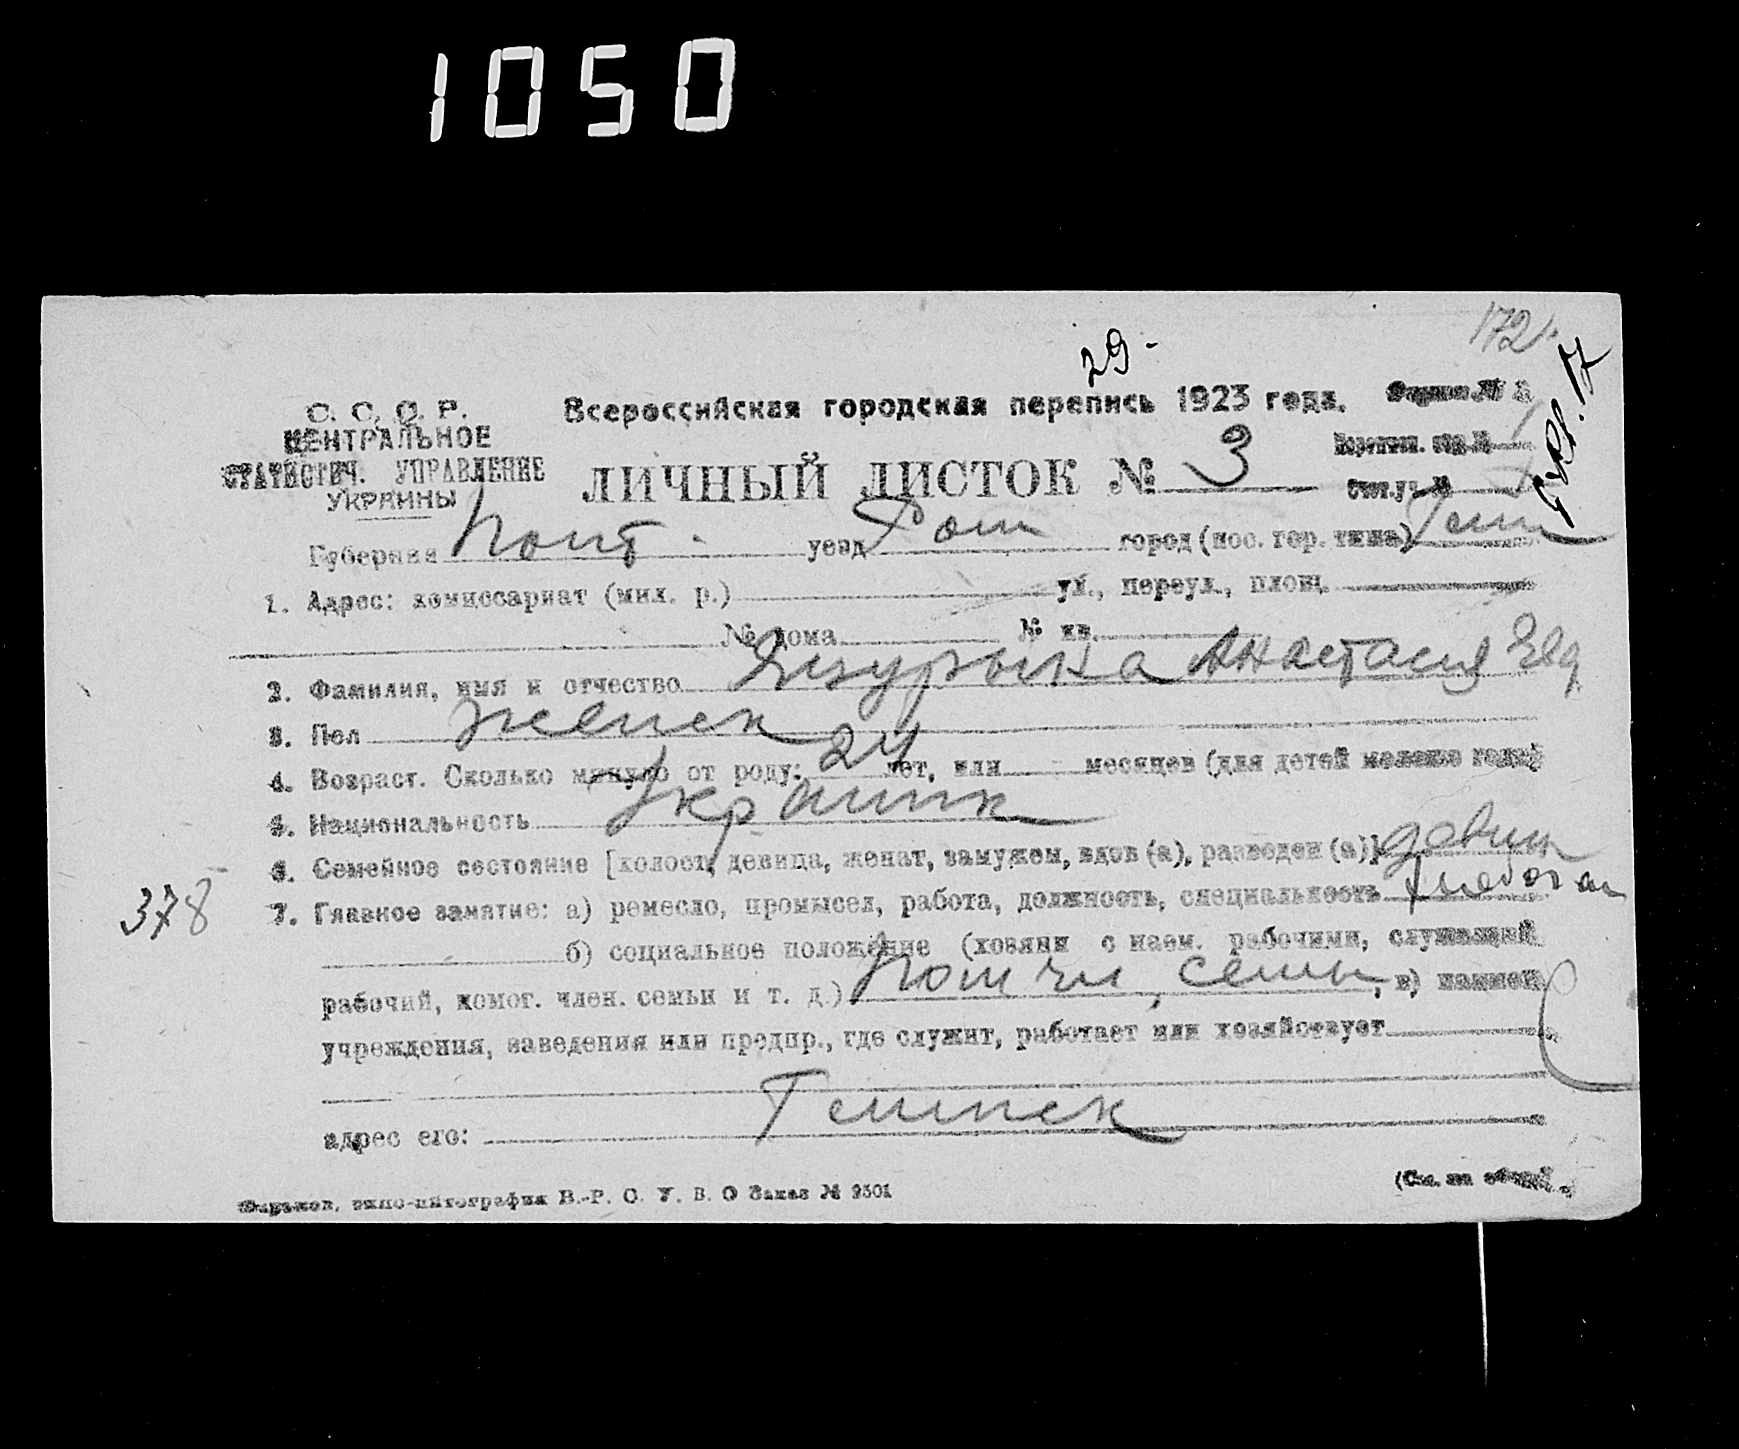 1050
172
29-
С. С. С. Р.
ЦЕНТРАЛЬНОЕ
СТАТИСТИЧ. УПРАВЛЕНИЕ
УКРАИНЫ
Всероссийская городская перепись 1923 года.
Форма № 2
ЛИЧНЫЙ ЛИСТОК № 3
Губерния Полт. уезд Ром город (пос. гор. типа)
1. Адрес: комиссариат (мил. р.) ул., переул., площ.
№ дома № кв.
2. Фамилия, имя и отчество Анастасия Евд
3. Пол женск
4. Возраст. Сколько минуло от роду: 24 лет, или месяцев (для детей моложе года)
5. Национальность Украинк
6. Семейное состояние [холост, девица, женат, замужем, вдов (а), разведен (а)] девиц
378 7. Главное занятие: а) ремесло, промысел, работа, должность, специальность
б) социальное положение (хозяин с наем. рабочими, служащий
рабочий, комог. член. семьи и т. д.) семьи, в) наимен.
учреждения, заведения или предпр., где служит, работает или хозяйствует
адрес его:
Харьков, типо-литография В.-Р. С. У. В. О Заказ № 2501
(См. на обороте)